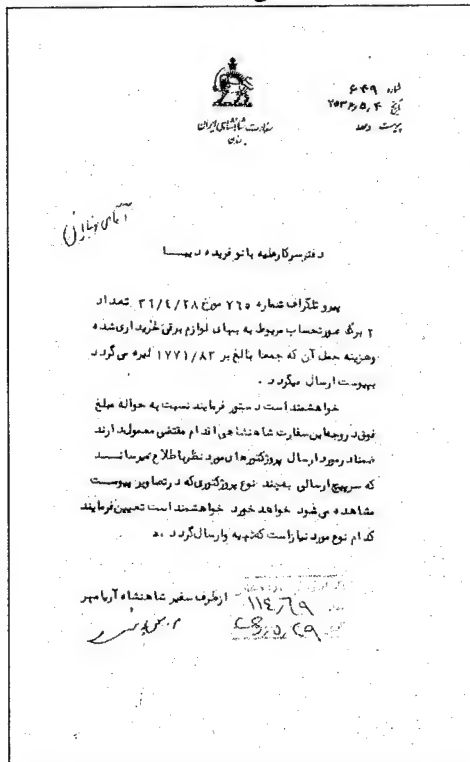 شماره ۶۴۹
تاریخ ۲۵۳۶٫۵٫۴
پیوست دارد
سفارت شاهنشاهی ایران
لندن
آقای
دفتر سرکار علیه بانو فریده دیبا
پیرو تلگراف شماره ۷٦٥ مورخ ۳٦/٤/۲۸ تعداد
۲ برگ صورتحساب مربوط به بهای لوازم برقی خریداری شده
وهزینه حمل آن که جمعا بالغ بر ۱۷۷۱/۸۳ لیره می گردد
بپیوست ارسال میگردد .
خواهشمند است دستور فرمایند نسبت به حواله مبلغ
فوق در وجه این سفارت شاهنشاهی اقدام مقتضی معمول دارند
ضمنا در مورد ارسال پروژکتورهای مورد نظر باطلاع میرساند
که سرپیچ ارسالی بچند نوع پروژکتوری که در تصاویر پیوست
مشاهده می شود خواهد خورد خواهشمند است تعیین فرمایند
کدام نوع مورد نیاز است که تهیه و ارسال گردد .
از طرف سفیر شاهنشاه آریامهر
۱۱٤٫٦۹